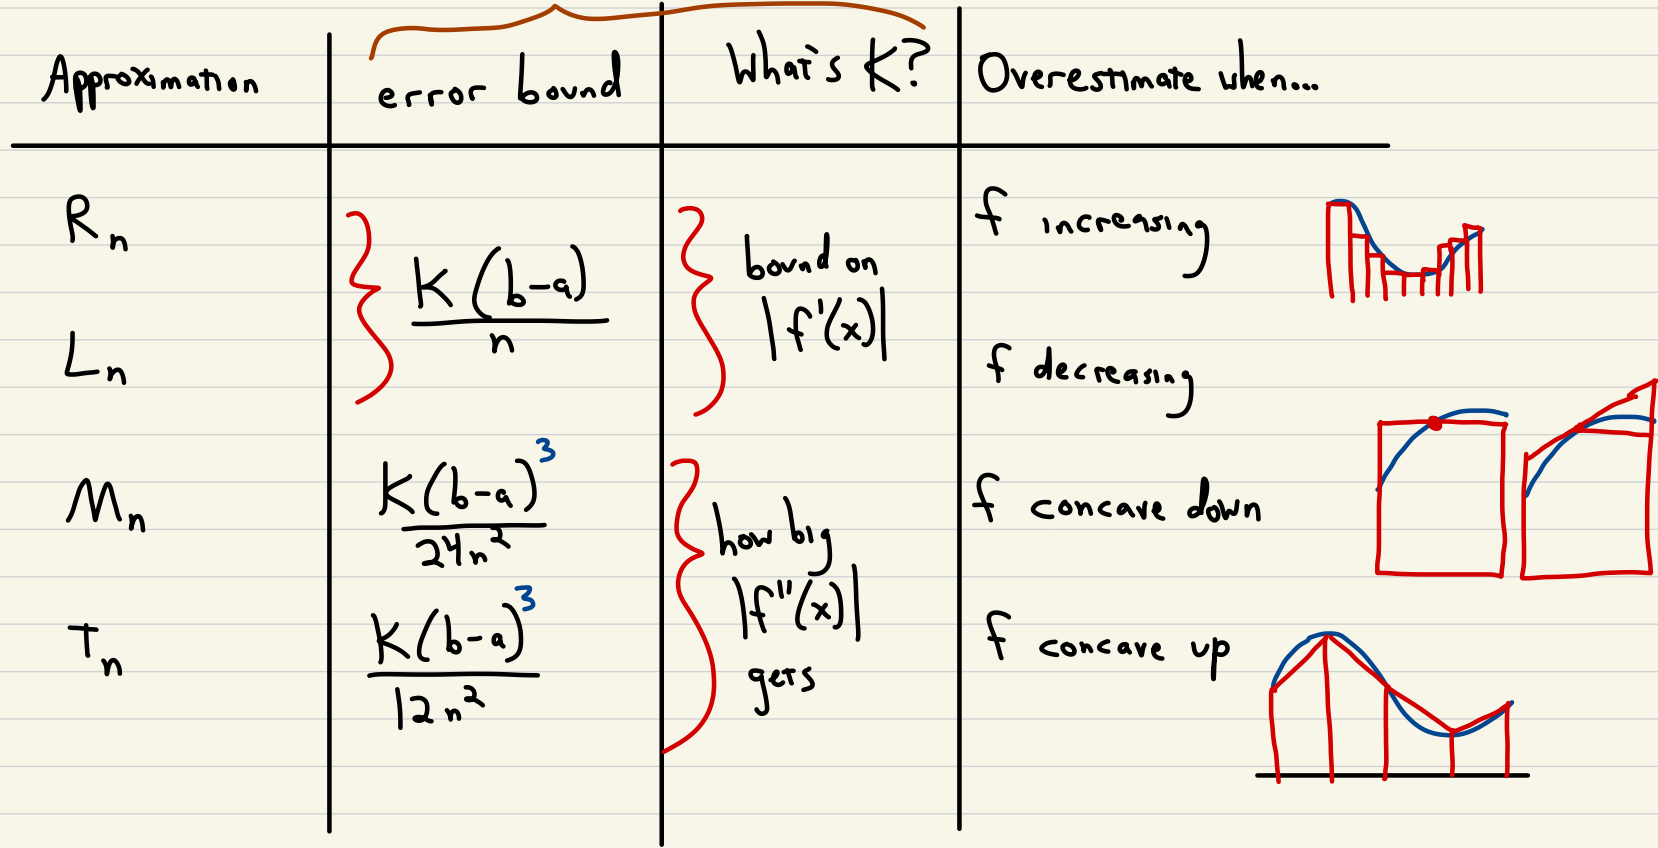 Approximation
error bound
What's K?
Overestimate when...
Rₙ
K(b-a)
n
bound on
|f'(x)|
f increasing
Lₙ
f decreasing
Mₙ
K(b-a)³
24n²
how big
|f''(x)|
gets
f concave down
Tₙ
K(b-a)³
12n²
f concave up